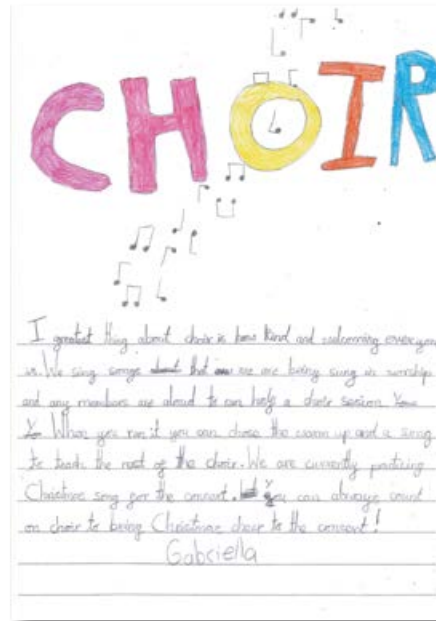 CHOIR
I greatest thing about choir is how kind and welcomming everyone
is. We sing songs about that we are being sung in worship
and any members are aloud to run help a choir session. You
Yo When you run it you can chose the warm up and a song
to teach the rest of the choir. We are currently practicing
Christmas song for the concert. You can always count
on choir to bring Christmas cheer to the concert!
Gabriella